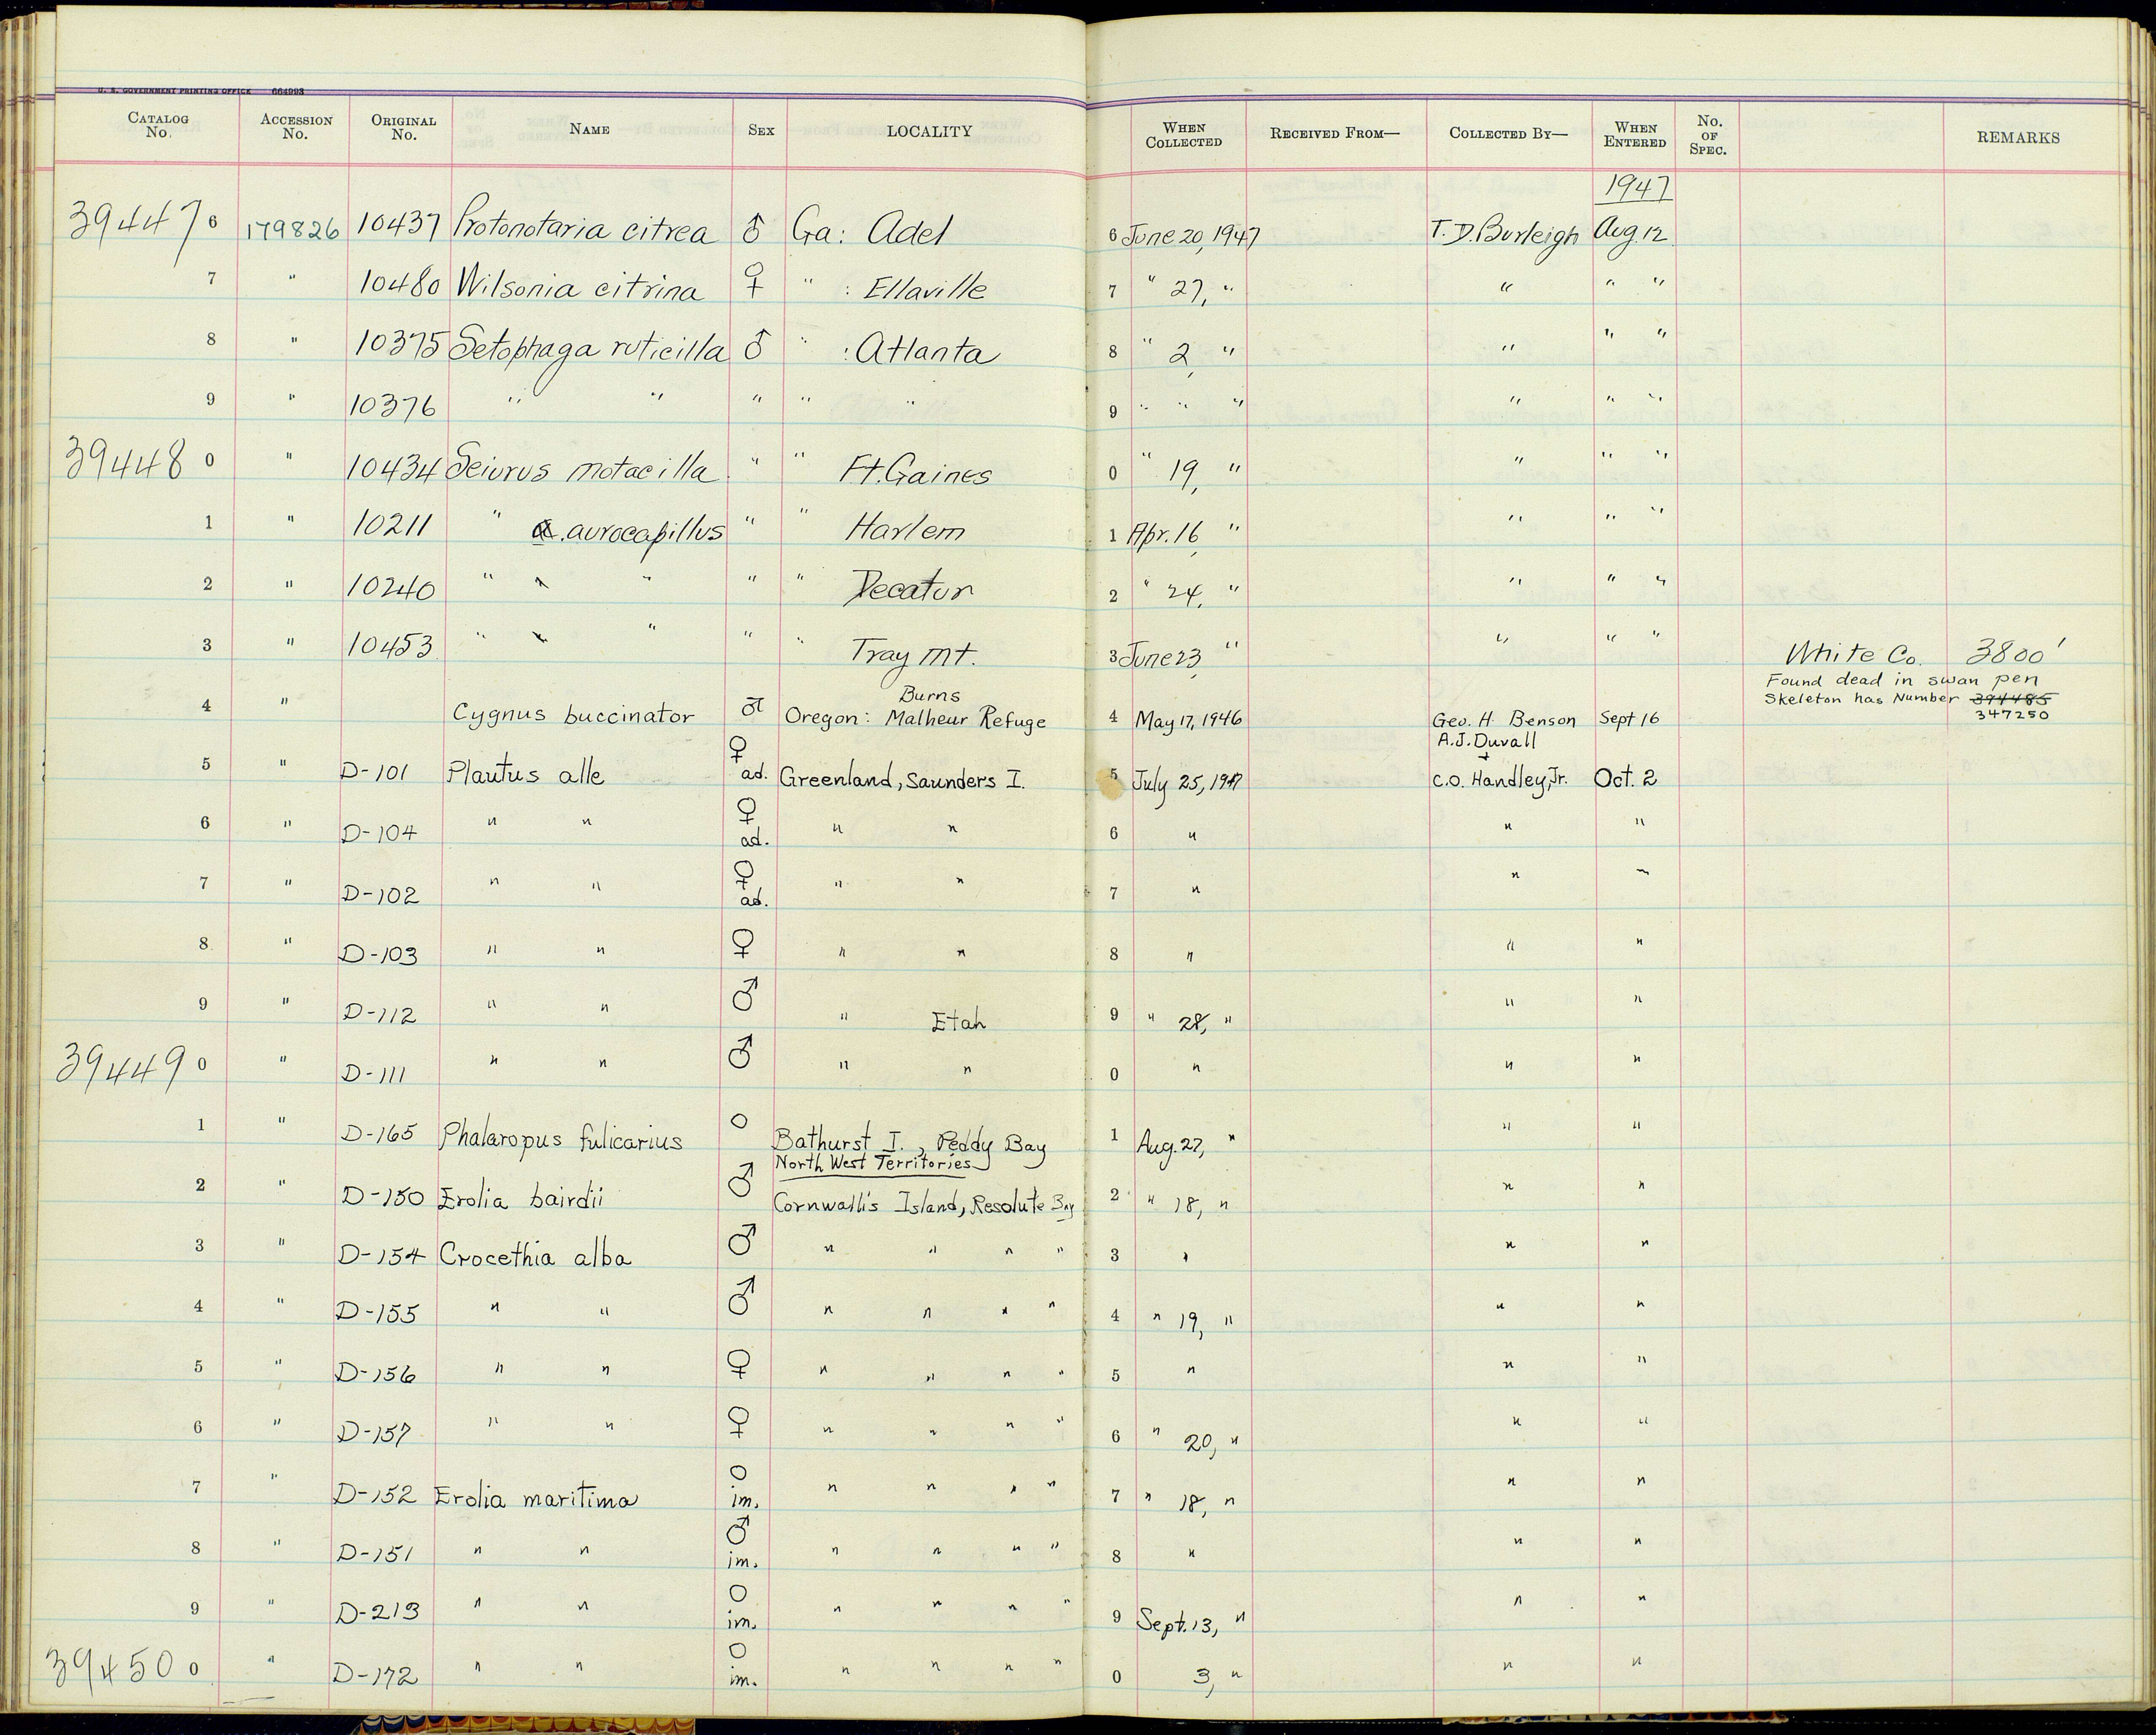 U. S. GOVERNMENT PRINTING OFFICE 664993
CATALOG No. ACCESSION No. ORIGINAL No. NAME SEX LOCALITY WHEN COLLECTED RECEIVED FROM— COLLECTED BY— WHEN ENTERED No. OF SPEC. REMARKS
1947
39447 6 179826 10437 Protonotaria citrea ♂ Ga: Adel 6 June 20, 1947 T. D. Burleigh Aug. 12
7 " 10480 Wilsonia citrina ♀ " : Ellaville 7 " 27, " " " "
8 " 10375 Setophaga ruticilla ♂ " : Atlanta 8 " 2, " " " "
9 " 10376 " " " " " 9 " " " " " "
39448 0 " 10434 Seiurus motacilla " " Ft. Gaines 0 " 19, " " " "
1 " 10211 " a. aurocapillus " " Harlem 1 Apr. 16, " " " "
2 " 10240 " " " " " Decatur 2 " 24, " " " "
3 " 10453 " " " " " Tray Mt. 3 June 23, " " " " White Co. 3800'
4 " Cygnus buccinator ♂ Oregon: Burns Malheur Refuge 4 May 17, 1946 Geo. H. Benson Sept 16 Found dead in swan pen
Skeleton has Number 394485
347250
5 " D-101 Plautus alle ♀ ad. Greenland, Saunders I. 5 July 25, 1947 A. J. Duvall + C. O. Handley, Jr. Oct. 2
6 " D-104 " " ♀ ad. " " 6 " " "
7 " D-102 " " ♀ ad. " " 7 " " "
8 " D-103 " " ♀ " " 8 " " "
9 " D-112 " " ♂ " Etah 9 " 28, " " "
39449 0 " D-111 " " ♂ " " 0 " " "
1 " D-165 Phalaropus fulicarius O Bathurst I., Peddy Bay 1 Aug. 27, " " "
North West Territories
2 " D-150 Erolia bairdii ♂ Cornwallis Island, Resolute Bay 2 " 18, " " "
3 " D-154 Crocethia alba ♂ " " " " 3 " " "
4 " D-155 " " ♂ " " " " 4 " 19, " " "
5 " D-156 " " ♀ " " " " 5 " " "
6 " D-157 " " ♀ " " " " 6 " 20, " " "
7 " D-152 Erolia maritima O im. " " " " 7 " 18, " " "
8 " D-151 " " ♂ im. " " " " 8 " " "
9 " D-213 " " O im. " " " " 9 Sept. 13, " " "
39450 0 " D-172 " " O im. " " " " 0 3, " " "